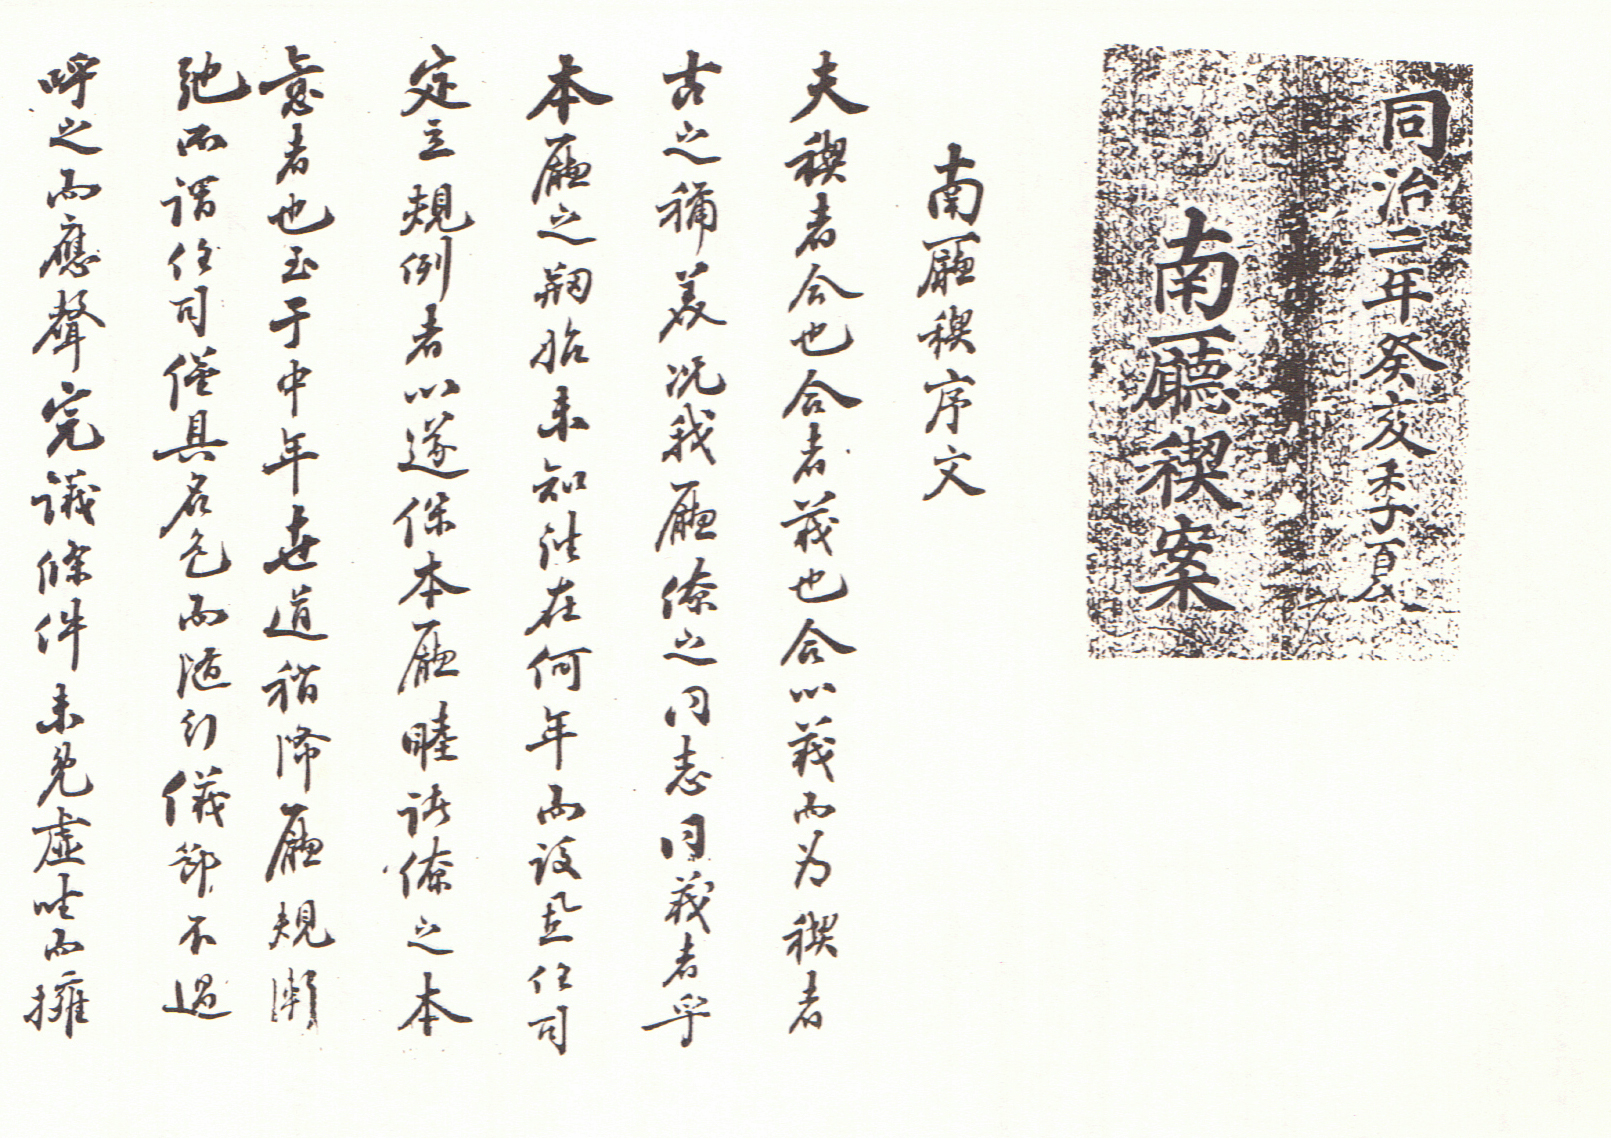 同治二年癸亥
南廳稧案
南廳稧序文
夫稧者合也合者義也合以義而为稧者
古之稱美况我廳僚之同志同義者乎
本廳之刱始未知詳在何年而設置任司
定立規例者以遂保本廳睦諸僚之本
意者也至于中年世道稍降廳規漸
弛而謂任司僅具名色而随行儀節不過
呼之而應聲完議條件未免虛吐而擁